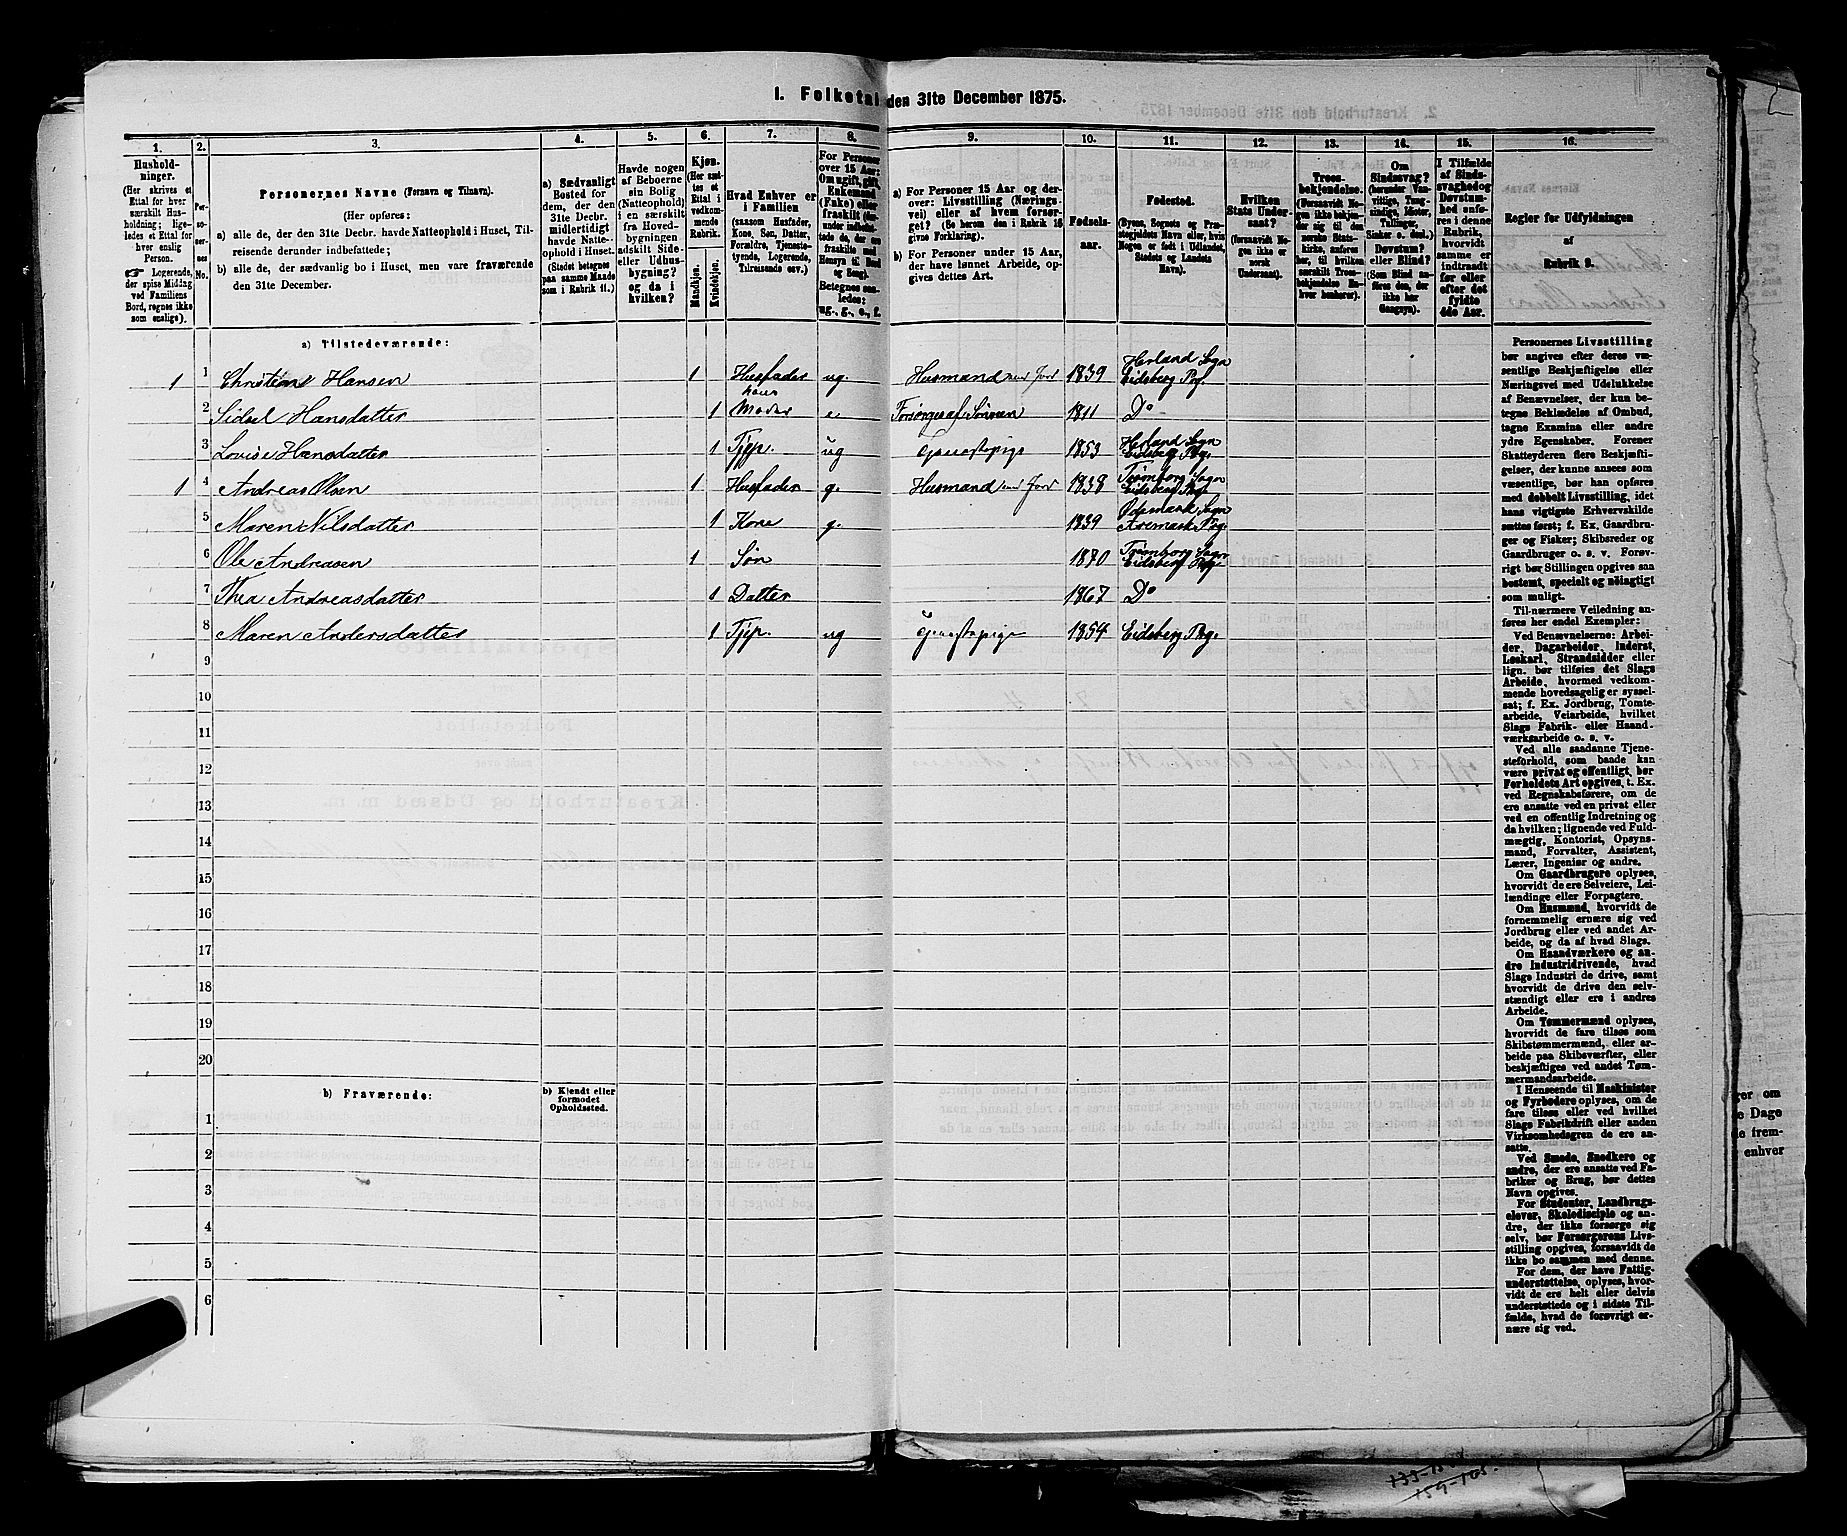 1. Folketal den 31te December 1875.
1. 2. 3. 4. 5. 6. 7. 8. 9. 10. 11. 12. 13. 14. 15. 16.
Hushold-
ninger.
(Her skrives et
Ettal for hver
særskilt Hus-
holdning; lige-
ledes et Ettal for
hver enslig
Person.
☞ Logerende,
der spise Middag
ved Familiens
Bord, regnes ikke
som enslige).
Per-
so-
ner-
nes
No.
Personernes Navne (Fornavn og Tilnavn).
(Her opføres:
a) alle de, der den 31te Decbr. havde Natteophold i Huset, Til-
reisende derunder indbefattede;
b) alle de, der sædvanlig bo i Huset, men vare fraværende
den 31te December.
a) Sædvanligt
Bosted for
dem, der den
31te Decbr.
midlertidigt
havde Natte-
ophold i Huset.
(Stedet betegnes
paa samme Maade
som i Rubrik 11.)
Havde nogen
af Beboerne
sin Bolig
(Natteophold)
i en særskilt
fra Hoved-
bygningen
adskilt Side-
eller Udhus-
bygning?
og da i
hvilken?
Kjøn.
(Her sæt-
tes et
Ettal i
vedkom-
mende
Rubrik.
Mandkjøn.
Kvindekjøn.
Hvad Enhver er
i Familien
(saasom Husfader,
Kone, Søn, Datter,
Forældre, Tjeneste-
tyende, Logerende,
Tilreisende osv.)
For Personer
over 15 Aar:
Om ugift, gift,
Enkemand
(Enke) eller
fraskilt
Betegnes saa-
ledes:
ug., g., e., f.
a) For Personer 15 Aar og der-
over: Livsstilling (Nærings-
vei) eller af hvem forsør-
get? (Se herom den i Rubrik 16
givne Forklaring).
b) For Personer under 15 Aar,
der have lønnet Arbeide, op-
gives dettes Art.
Fødsels-
aar.
Fødested.
(Byens, Sognets og Præ-
stegjeldets Navn eller, hvis
Nogen er født i Udlandet,
Stedets og Landets
Navn).
Hvilken
Stats Under-
saat?
(forsaavidt No-
gen ikke er
norsk
Undersaat).
Troes-
bekjendelse.
(Forsaavidt No-
gen ikke beken-
der sig til den
norske Stats-
kirke, anføres
her, til hvilken
særskilt Troes-
bekjendelse En-
hver henhører).
Om
Sindssvag?
(herunder Van-
vittige, Tung-
sindige, Idioter,
Tullinger,
Sinker o. desl.)
Døvstum?
eller Blind?
(Som Blind an-
føres den, der
ikke har
Gangsyn).
I Tilfælde
af Sinds-
svaghed og
Døvstum-
hed anfø-
res i denne
Rubrik,
hvorvidt
samme er
indtraadt
før eller
efter det
fyldte
4de Aar.
Regler for Udfyldningen
af
Rubrik 9.
a) Tilstedeværende:
1 1 Christian Hansen 1 Husfader ug. Husmand med Jord 1839 Herland Sogn Eidsberg Pgj.
2 Sidsel Hansdatter 1 hans Moder e. Forsørges af Sønnen 1811 Do
3 Lovise Hansdatter 1 Tjp. ug Tjenestepige 1853 Herland Sogn Eidsberg Pgj.
1 4 Andreas Olsen 1 Husfader g. Husmand med Jord 1838 Trømborg Sogn Eidsberg Pgj.
5 Maren Nilsdatter 1 Kone g. 1839 Ødemark Sogn Aremark Pgj.
6 Ole Andreasen 1 Søn 1870 Trømborg Sogn Eidsberg Pgj.
7 Thea Andreasdatter 1 Datter 1867 Do
8 Maren Andersdatter 1 Tjp. ug Tjenestepige 1854 Eidsberg Pgj.
9
10
11
12
13
14
15
16
17
18
19
20
b) Fraværende:
b) Kjendt eller
formodet
Opholdssted.
1
2
3
4
5
6
Personernes Livsstilling
bør angives efter deres væ-
sentlige Beskjæftigelse eller
Næringsvei med Udelukkelse
af Benævnelser, der kun be-
tegne Beklædelse af Ombud,
tagne Examina eller andre
ydre Egenskaber. Forener
Skatteyderen flere Beskjæfti-
gelser, der kunne ansees som
væsentlige, bør han opføres
med dobbelt Livsstilling, idet
hans vigtigste Erhvervskilde
sættes først; f. Ex. Gaardbru-
ger og Fisker; Skibsreder og
Gaardbruger o. s. v. Forøv-
rigt bør Stillingen opgives saa
bestemt, specielt og nøiagtigt
som muligt.
Til nærmere Veiledning an-
føres her endel Exempler:
Ved Benævnelserne: Arbei-
der, Dagarbeider, Inderst,
Løskarl, Strandsidder eller
lign. bør tilføies det Slags
Arbeide, hvormed vedkom-
mende hovedsagelig er syssel-
sat; f. Ex. Jordbrug, Tomte-
arbeide, Veiarbeide, hvilket
Slags Fabrik- eller Haand-
værksarbeide o. s. v.
Ved alle saadanne Tjene-
steforhold, som baade kan
være privat og offentligt, bør
Forholdets Art opgives, t. Ex.
ved Regnskabsførere, om de
ere ansatte ved en privat eller
ved en offentlig Indretning og
da hvilken; lignende ved Fuld-
mægtig, Kontorist, Opsyns-
mand, Forvalter, Assistent,
Lærer, Ingeniør og andre.
Om Gaardbrugere oplyses,
hvorvidt de ere Selveiere, Lei-
lændinge eller Forpagtere.
Om Husmænd, hvorvidt de
fornemmelig ernære sig ved
Jordbrug eller ved andet Ar-
beide, og da af hvad Slags.
Om Haandværkere og an-
dre Industridrivende, hvad
Slags Industri de drive, samt
hvorvidt de drive den selv-
stændigt eller ere i andres
Arbeide.
Om Tømmermænd oplyses,
hvorvidt de fare tilsøs som
Skibstømmermænd, eller ar-
beide paa Skibsværfter, eller
beskjæftiges ved andet Tøm-
mermandsarbeide.
I Henseende til Maskinister
og Fyrbødere oplyses, om de
fare tilsøs eller ved hvilket
Slags Fabrikdrift eller anden
Virksomhedsgren de ere an-
satte.
Ved Smede, Snedkere og
andre, der ere ansatte ved Fa-
briker og Brug, bør dettes
Navn opgives.
For Studenter, Landbrugs-
elever, Skoledisciple og an-
dre, der ikke forsørge sig
selv, bør Forsørgerens Livs-
stilling opgives, forsaavidt de
ikke bo sammen med denne.
For dem, der have Fattig-
understøttelse, oplyses, hvor-
vidt de ere helt eller delvis
understøttede og i sidste Til-
fælde, hvad de forøvrigt er-
nære sig ved.
ger om
e Dage
le frem-
enhver
159-165.